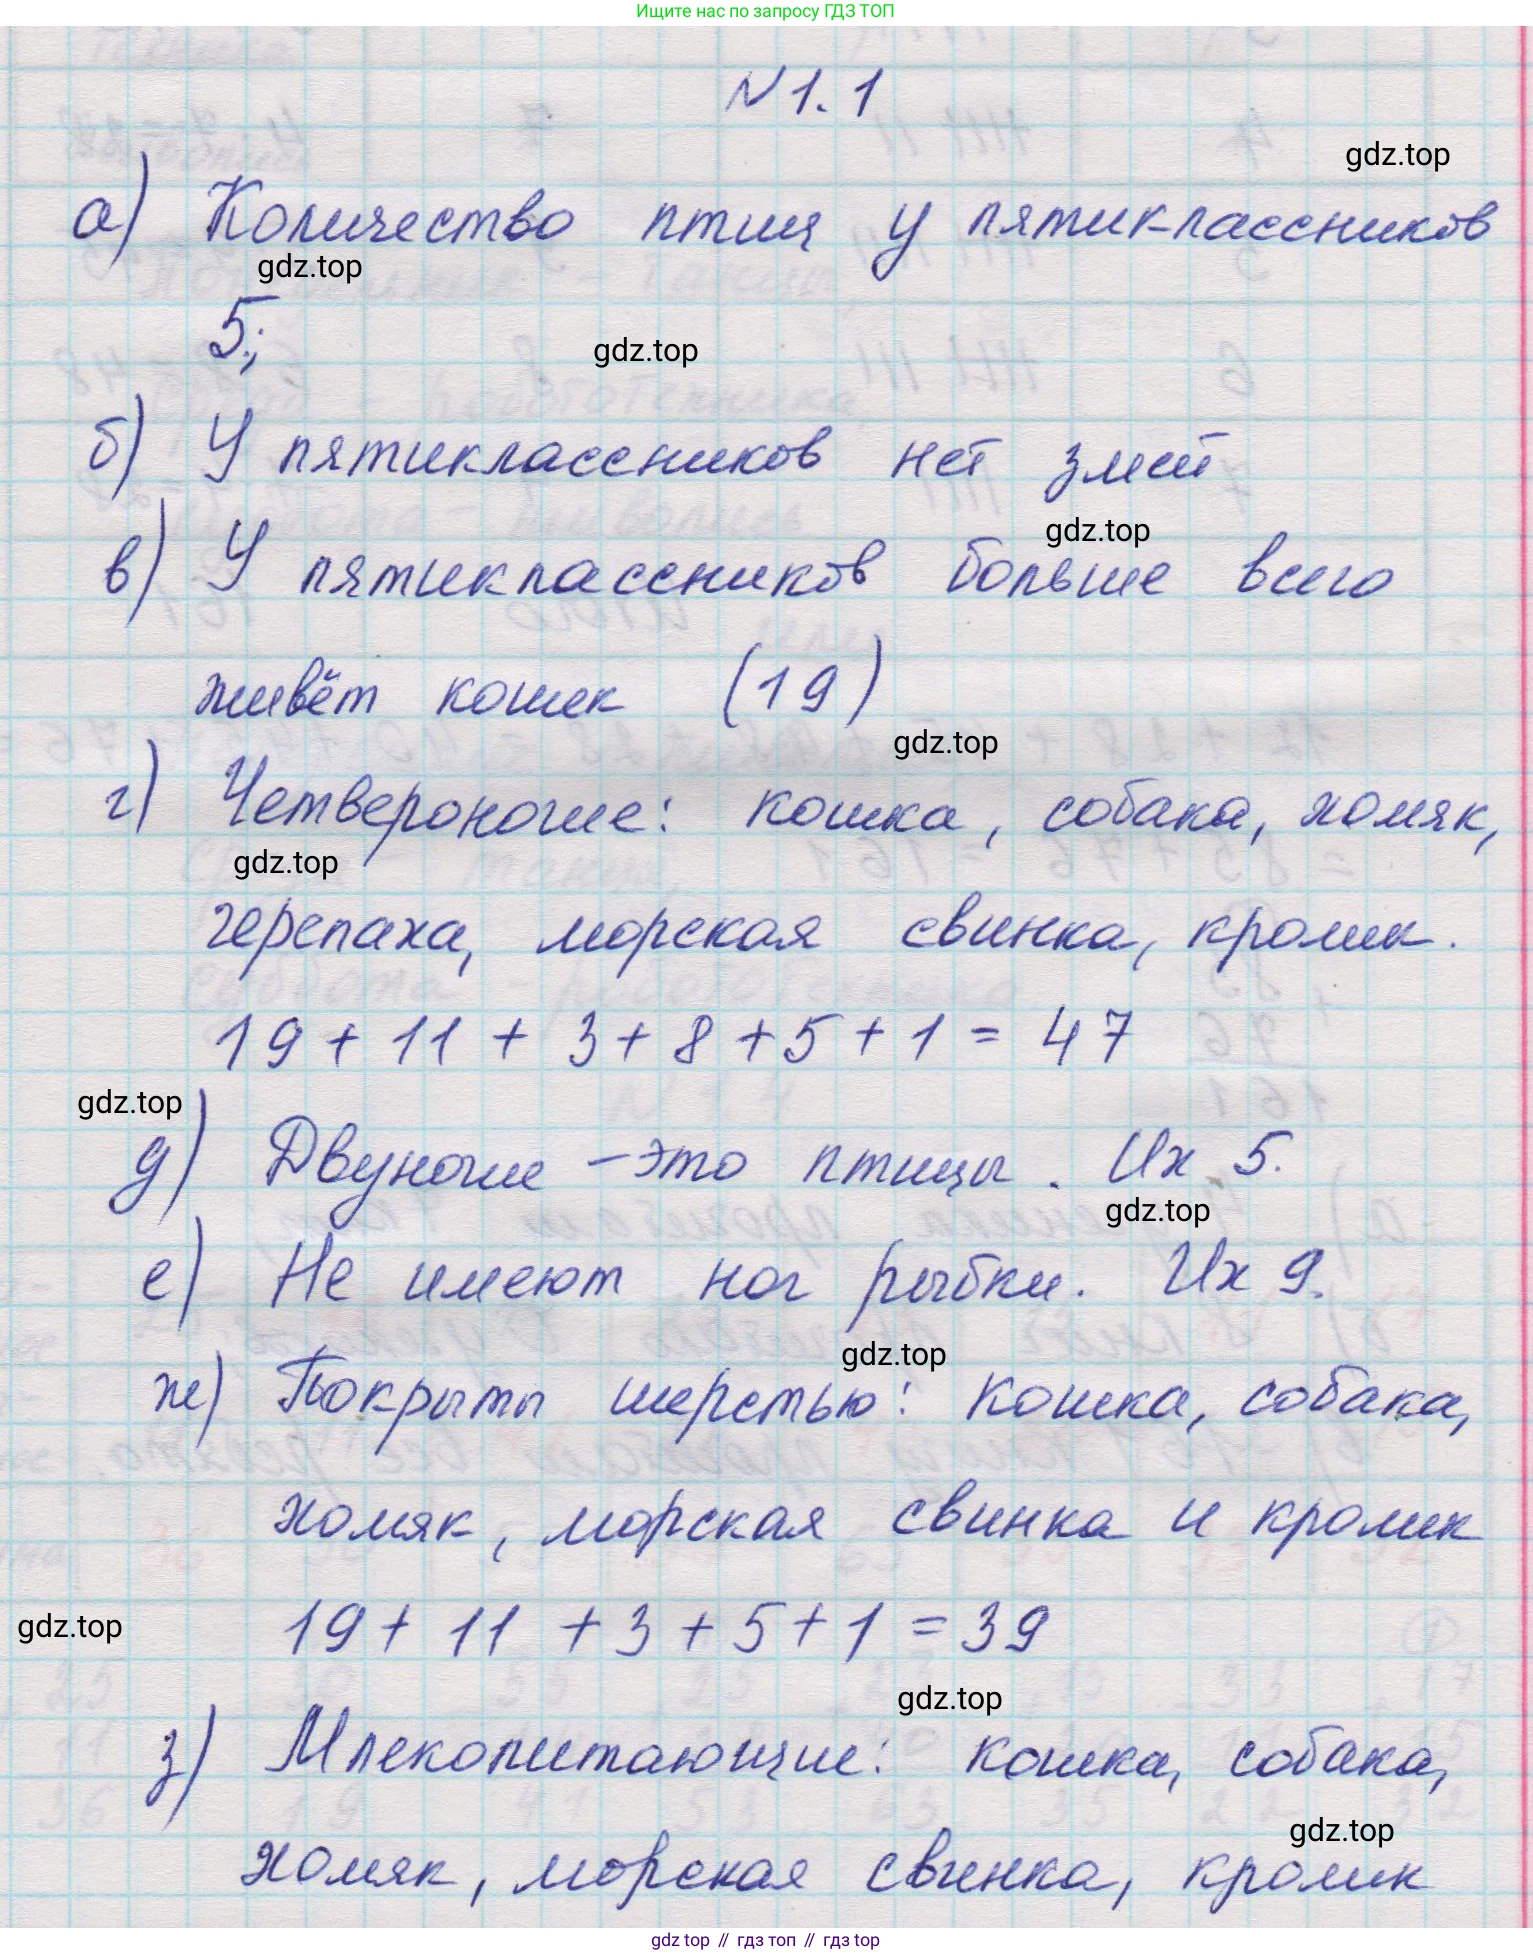 Ищите нас по запросу ГДЗ ТОП
№1.1
gdz.top
а) Количество птиц у пятиклассников
gdz.top
5;
gdz.top
б) У пятиклассников нет змей
gdz.top
в) У пятиклассников больше всего
живёт кошек (19)
gdz.top
г) Четвероногие: кошка, собака, хомяк,
gdz.top
черепаха, морская свинка, кролик.
19 + 11 + 3 + 8 + 5 + 1 = 47
gdz.top
д) Двуногие – это птицы. Их 5.
gdz.top
е) Не имеют ног рыбки. Их 9.
gdz.top
ж) Покрыты шерстью: кошка, собака,
хомяк, морская свинка и кролик
19 + 11 + 3 + 5 + 1 = 39
gdz.top
gdz.top
з) Млекопитающие: кошка, собака,
gdz.top
хомяк, морская свинка, кролик
gdz top // гдз топ // гдз top